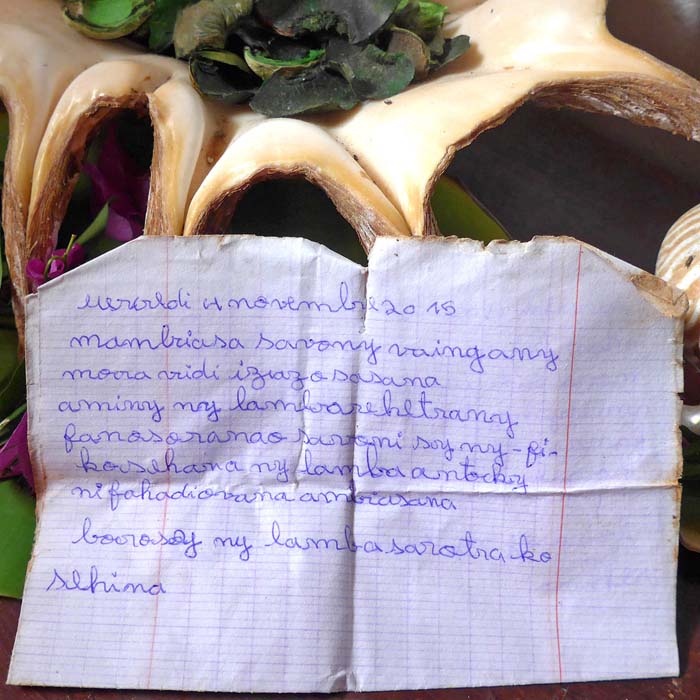 mercredi 4 novembre 2015
mambiasa savony vaingany
mora vidi iziazo sasana
aminy ny lambarehetrany
fanosoranao savoni soy ny-fi-
kosehana ny lamba antoky
ni fahadiovana ambiasana
borosoy ny lamba sarotra ko
sehina